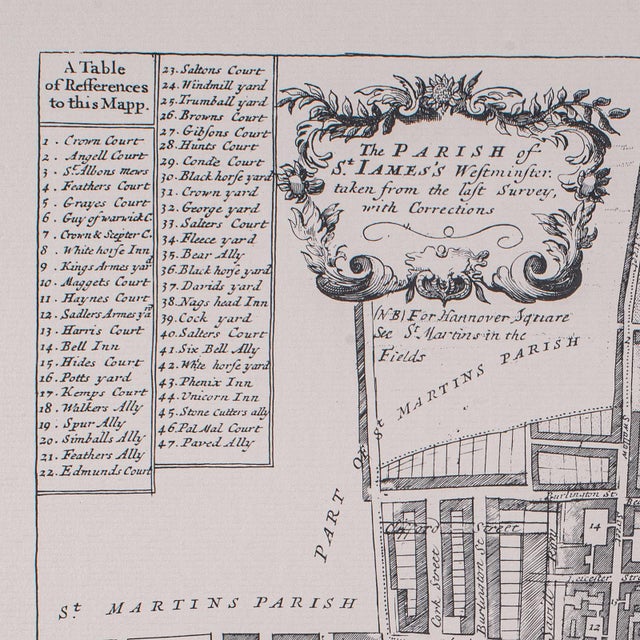 A Table
of Refferences
to this Mapp.
1. Crown Court
2. Angell Court
3. St. Albons mews
4. Feathers Court
5. Grayes Court
6. Guy of warwick C.
7. Crown & Scepter C.
8. White horse Inn
9. Kings Armes yard
10. Maggets Court
11. Haynes Court
12. Sadlers Armes yard
13. Harris Court
14. Bell Inn
15. Hides Court
16. Potts yard
17. Kemps Court
18. Walkers Ally
19. Spur Ally
20. Simballs Ally
21. Feathers Ally
22. Edmunds Court
23. Saltons Court
24. Windmill yard
25. Trumball yard
26. Browns Court
27. Gibsons Court
28. Hunts Court
29. Conde Court
30. Black horse yard
31. Crown yard
32. George yard
33. Salters Court
34. Fleece yard
35. Bear Ally
36. Black horse yard
37. Davids yard
38. Nags head Inn
39. Cock yard
40. Salters Court
41. Six Bell Ally
42. White horse yard
43. Phenix Inn
44. Unicorn Inn
45. Stone Cutters ally
46. Pal Mal Court
47. Paved Ally
The PARISH of
St. IAMES'S Westminster.
taken from the last Survey,
with Corrections
(NB) For Hannover Square
See St. Martins in the
Fields
PART OF St MARTINS PARISH
St. MARTINS PARISH
Burlington St.
Clifford Street
Cork Street
Burlington St
Leicester Str
14
12